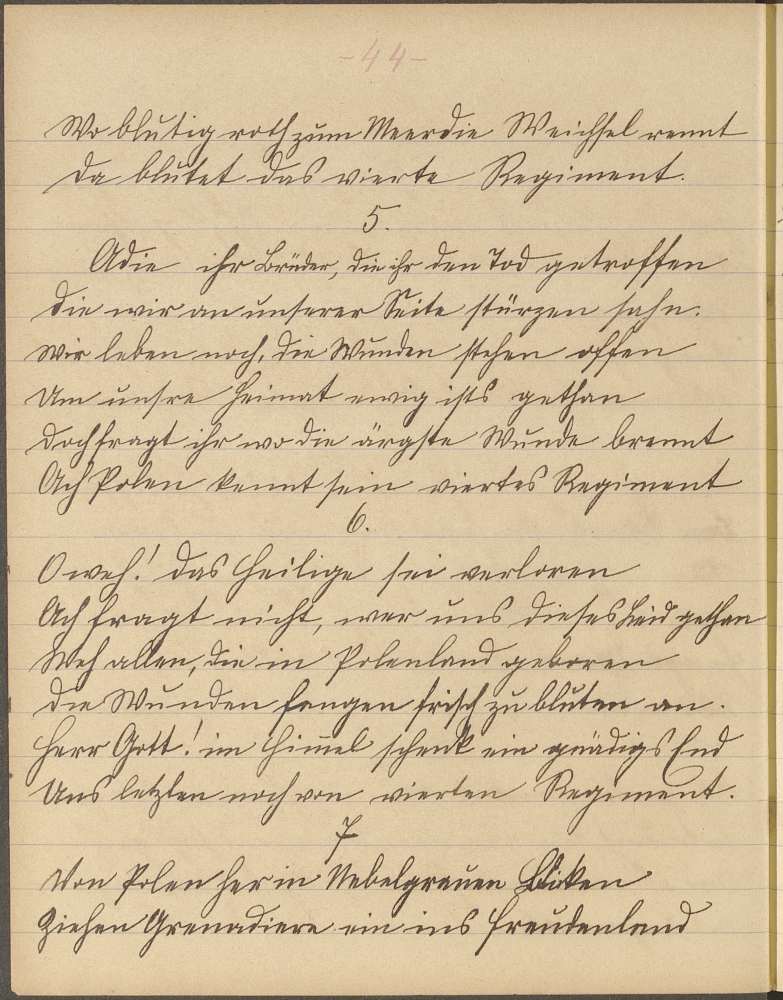 -44-
Wo blutig roth zum Meer die Weichsel rennt
Da blutet das vierte Regiment.
5.
Adie ihr Brüder, die ihr den Tod getroffen
Die wir an unserer Seite stürzen sahn.
Wir leben noch, die Wunden stehen offen
Um unsre Heimat ewig ists gethan
Doch fragt ihr wo die ärgste Wunde brennt
Ach Polen kennt sein viertes Regiment
6.
O weh! das Heilige sei verloren
Ach fragt nicht, wer uns dieses Leid gethan
Weh allen, die in Polenland geboren
Die Wunden fangen frisch zu bluten an.
Herr Gott! im Himel schenk ein gnädigs End
Uns letzten noch von vierten Regiment.
7
Von Polen her in Nebelgrauen
Ziehen Grenadiere ein ins Freudenland